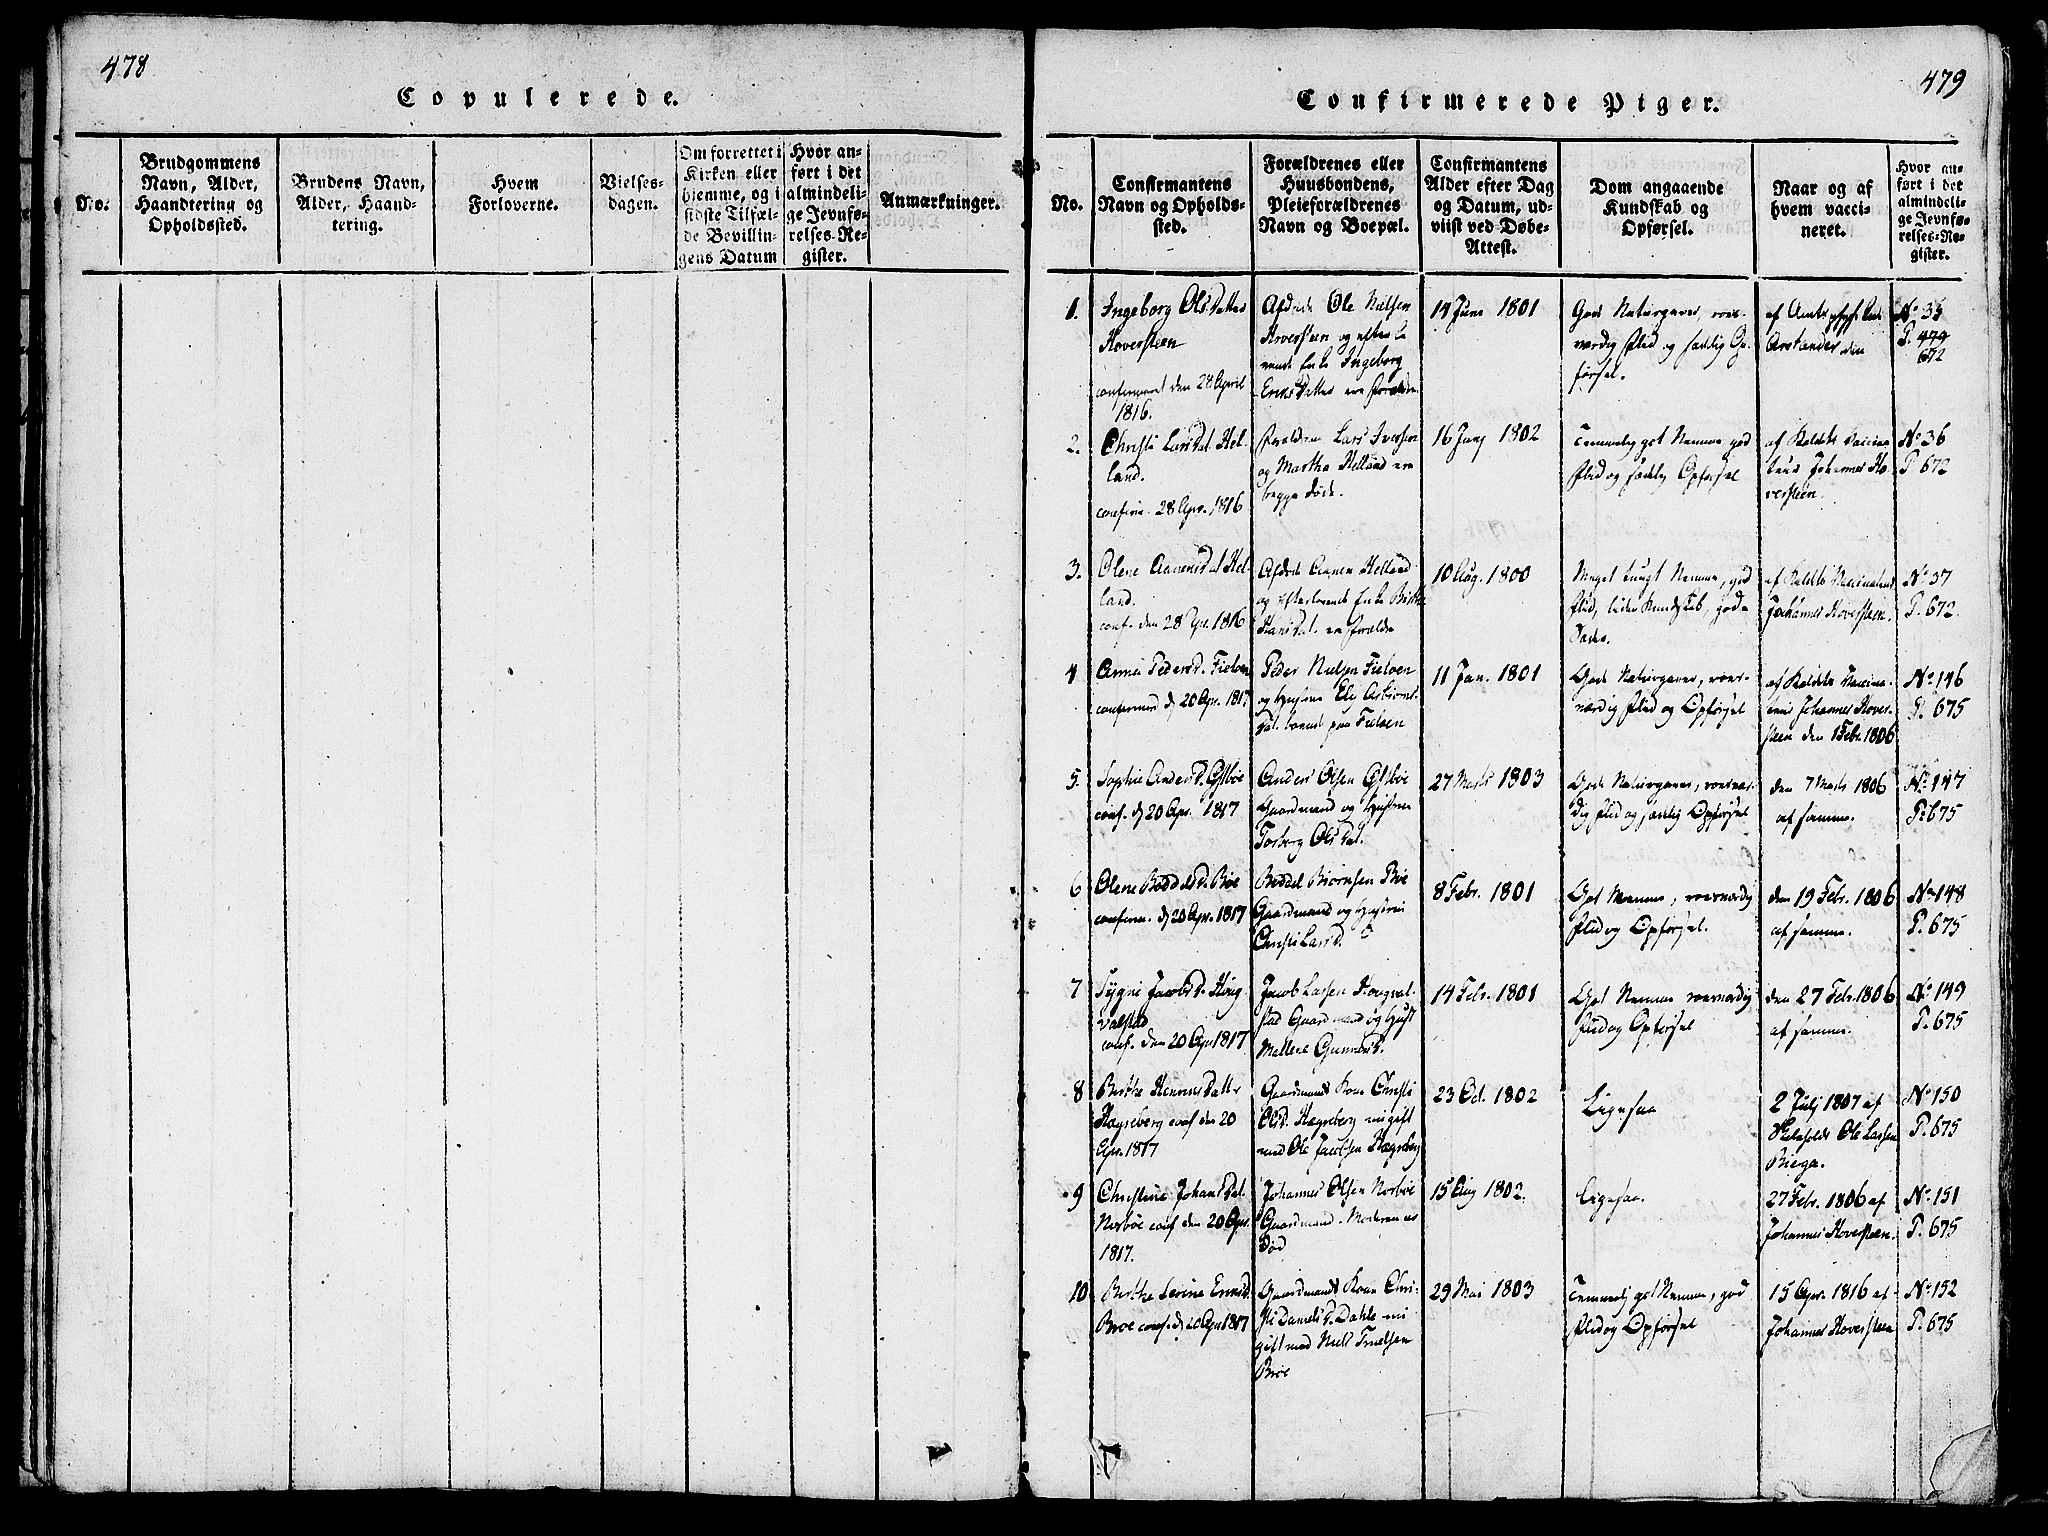 478
Copulerede.
No.
Brudgommens
Navn, Alder,
Haandtering og
Opholdssted.
Brudens Navn,
Alder, Haand-
tering.
Hvem
Forloverne.
Vielses-
dagen.
Om forrettet i
Kirken eller
hjemme, og i
sidste Tilfæl-
de Bevillin-
gens Datum
Hvor an-
ført i det
almindeli-
ge Jevnfø-
relses-Re-
gister.
Anmærkninger.
479
Confirmerede Piger.
No.
Confirmantens
Navn og Opholds-
sted.
Forældrenes eller
Huusbondens,
Pleieforældrenes
Navn og Boepæl.
Confirmantens
Alder efter Dag
og Datum, ud-
viist ved Døbe-
Attest.
Dom angaaende
Kundskab og
Opførsel.
Naar og af
hvem vacci-
neret.
Hvor an-
ført i det
almindeli-
ge Jevnfø-
relses-Re-
gister.
1.
Ingeborg Ols Datter
Hoversteen
confirmeret den 28 April
1816.
Afdøde Ole Nielsen
Hoversteen og efterle-
vende Enke Ingeborg
Eriks Datter ere Forældre
14 Juni 1801
Gode Naturgaver, roes-
værdig Flid og sædelig Op-
førsel.
af Amts
Arentander den
No 35
P. 479
672
2.
Christi Lars Dat. Hel-
land.
confirm. 28 Apr. 1816
Forældrene Lars Iversen
og Martha Helland ere
begge døde.
16 Juny 1802
Temmelig got Nemme god
Flid og sædelig Opførsel
af Koldets Vaccina-
teur Johannes Ho-
versteen.
No 36
P 672
3.
Olene Aanens Dat Hel-
land.
conf. den 28 Apr. 1816
Afdøde Aanen Helland
og efterlevende Enke Britte
Hans Dat. ere Forældre
10 Aug. 1800
Meget tungt Nemme, god
Flid, liden Kundskab, gode
Sæder.
af Koldets Vaccinateur
Johannes Hoversteen.
No 37
P. 672
4
Anna Peders D. Fielven
confirmered d. 20 Apr. 1817
Peder Nielsen Fielven
og Hustrue Eli
Dat. boende paa Fielven
11 Jan. 1801
Gode Naturgaver, roes-
værdig Flid og Opførsel
af Koldets Vaccina-
teur Johannes Hover-
steen den 1 Febr. 1806
No 146
P. 675
5.
Sophie Anders D.
conf. d. 20 Apr. 1817
Anders Olsen
Gaardmand og Hustrue
Torborg Ols Dat.
27 Marts 1803
Gode Naturgaver, roesvær-
dig Flid og sædelig Opførsel
den 7 Marts 1806
af samme.
No 147
P. 675
6
Olene Boddels D. Bøe
confirm. d. 20 Apr. 1817
Boddel Biørnsen Bøe
Gaardmand og Hustrue
Christi Lars D.
8 Febr. 1801
Got Nemme, roesværdig
Flid og Opførsel.
den 19 Febr. 1806
af samme.
No 148
P. 675
7
Sygni Jacobs D. Houg-
valstad
conf. den 20 Apr 1817
Jacob Larsen Hougval-
stad Gaardmand og Hust
Mallene Gunners D.
14 Febr. 1801
Got Nemme roesværdig
Flid og Opførsel
den 27 Febr. 1806
af samme.
No 149
P. 675
8
Berthe Henrics Datter
Hægreberg conf den 20
Apr. 1817
Gaardmands Kone Christi
Ols D. Hægreberg nu gift
med Ole Jacobsen Hægreberg
23 Oct. 1802
Ligesaa
2 July 1807 af
Skoleholder Ole Larsen
Biega.
No 150
P. 675
9
Christine Johans Dat.
Norbøe conf den 20 Apr.
1817.
Johannes Olsen Norbøe
Gaardmand. Moderen er
død
15 Aug 1802.
Ligesaa.
27 Febr. 1806 af
Johannes Hoversteen.
No 151
P. 675
10
Berthe Serine Ericsd.
Brøe conf. d. 20 Apr 1817
Gaardmands Kone Chri-
sti Daniels D. Dahle nu
gift med Niels Truelsen
Brøe
29 Mai 1803
Temmelig got Nemme, god
Flid og Opførsel
15 Apr. 1816 af
Johannes Hoversteen
No 152
P. 675